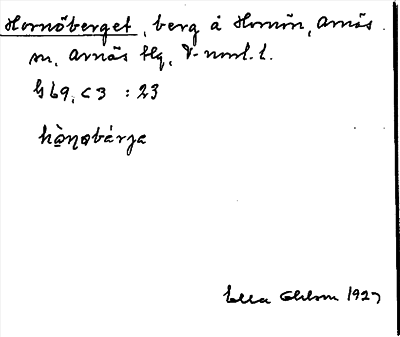 Hornöberget, berg å Hornön, Arnäs
m, Arnäs Hg, V-norrl. l.
G 69, C 3 : 23
hò̱ŋəbárja
Ella Ohlson 1927